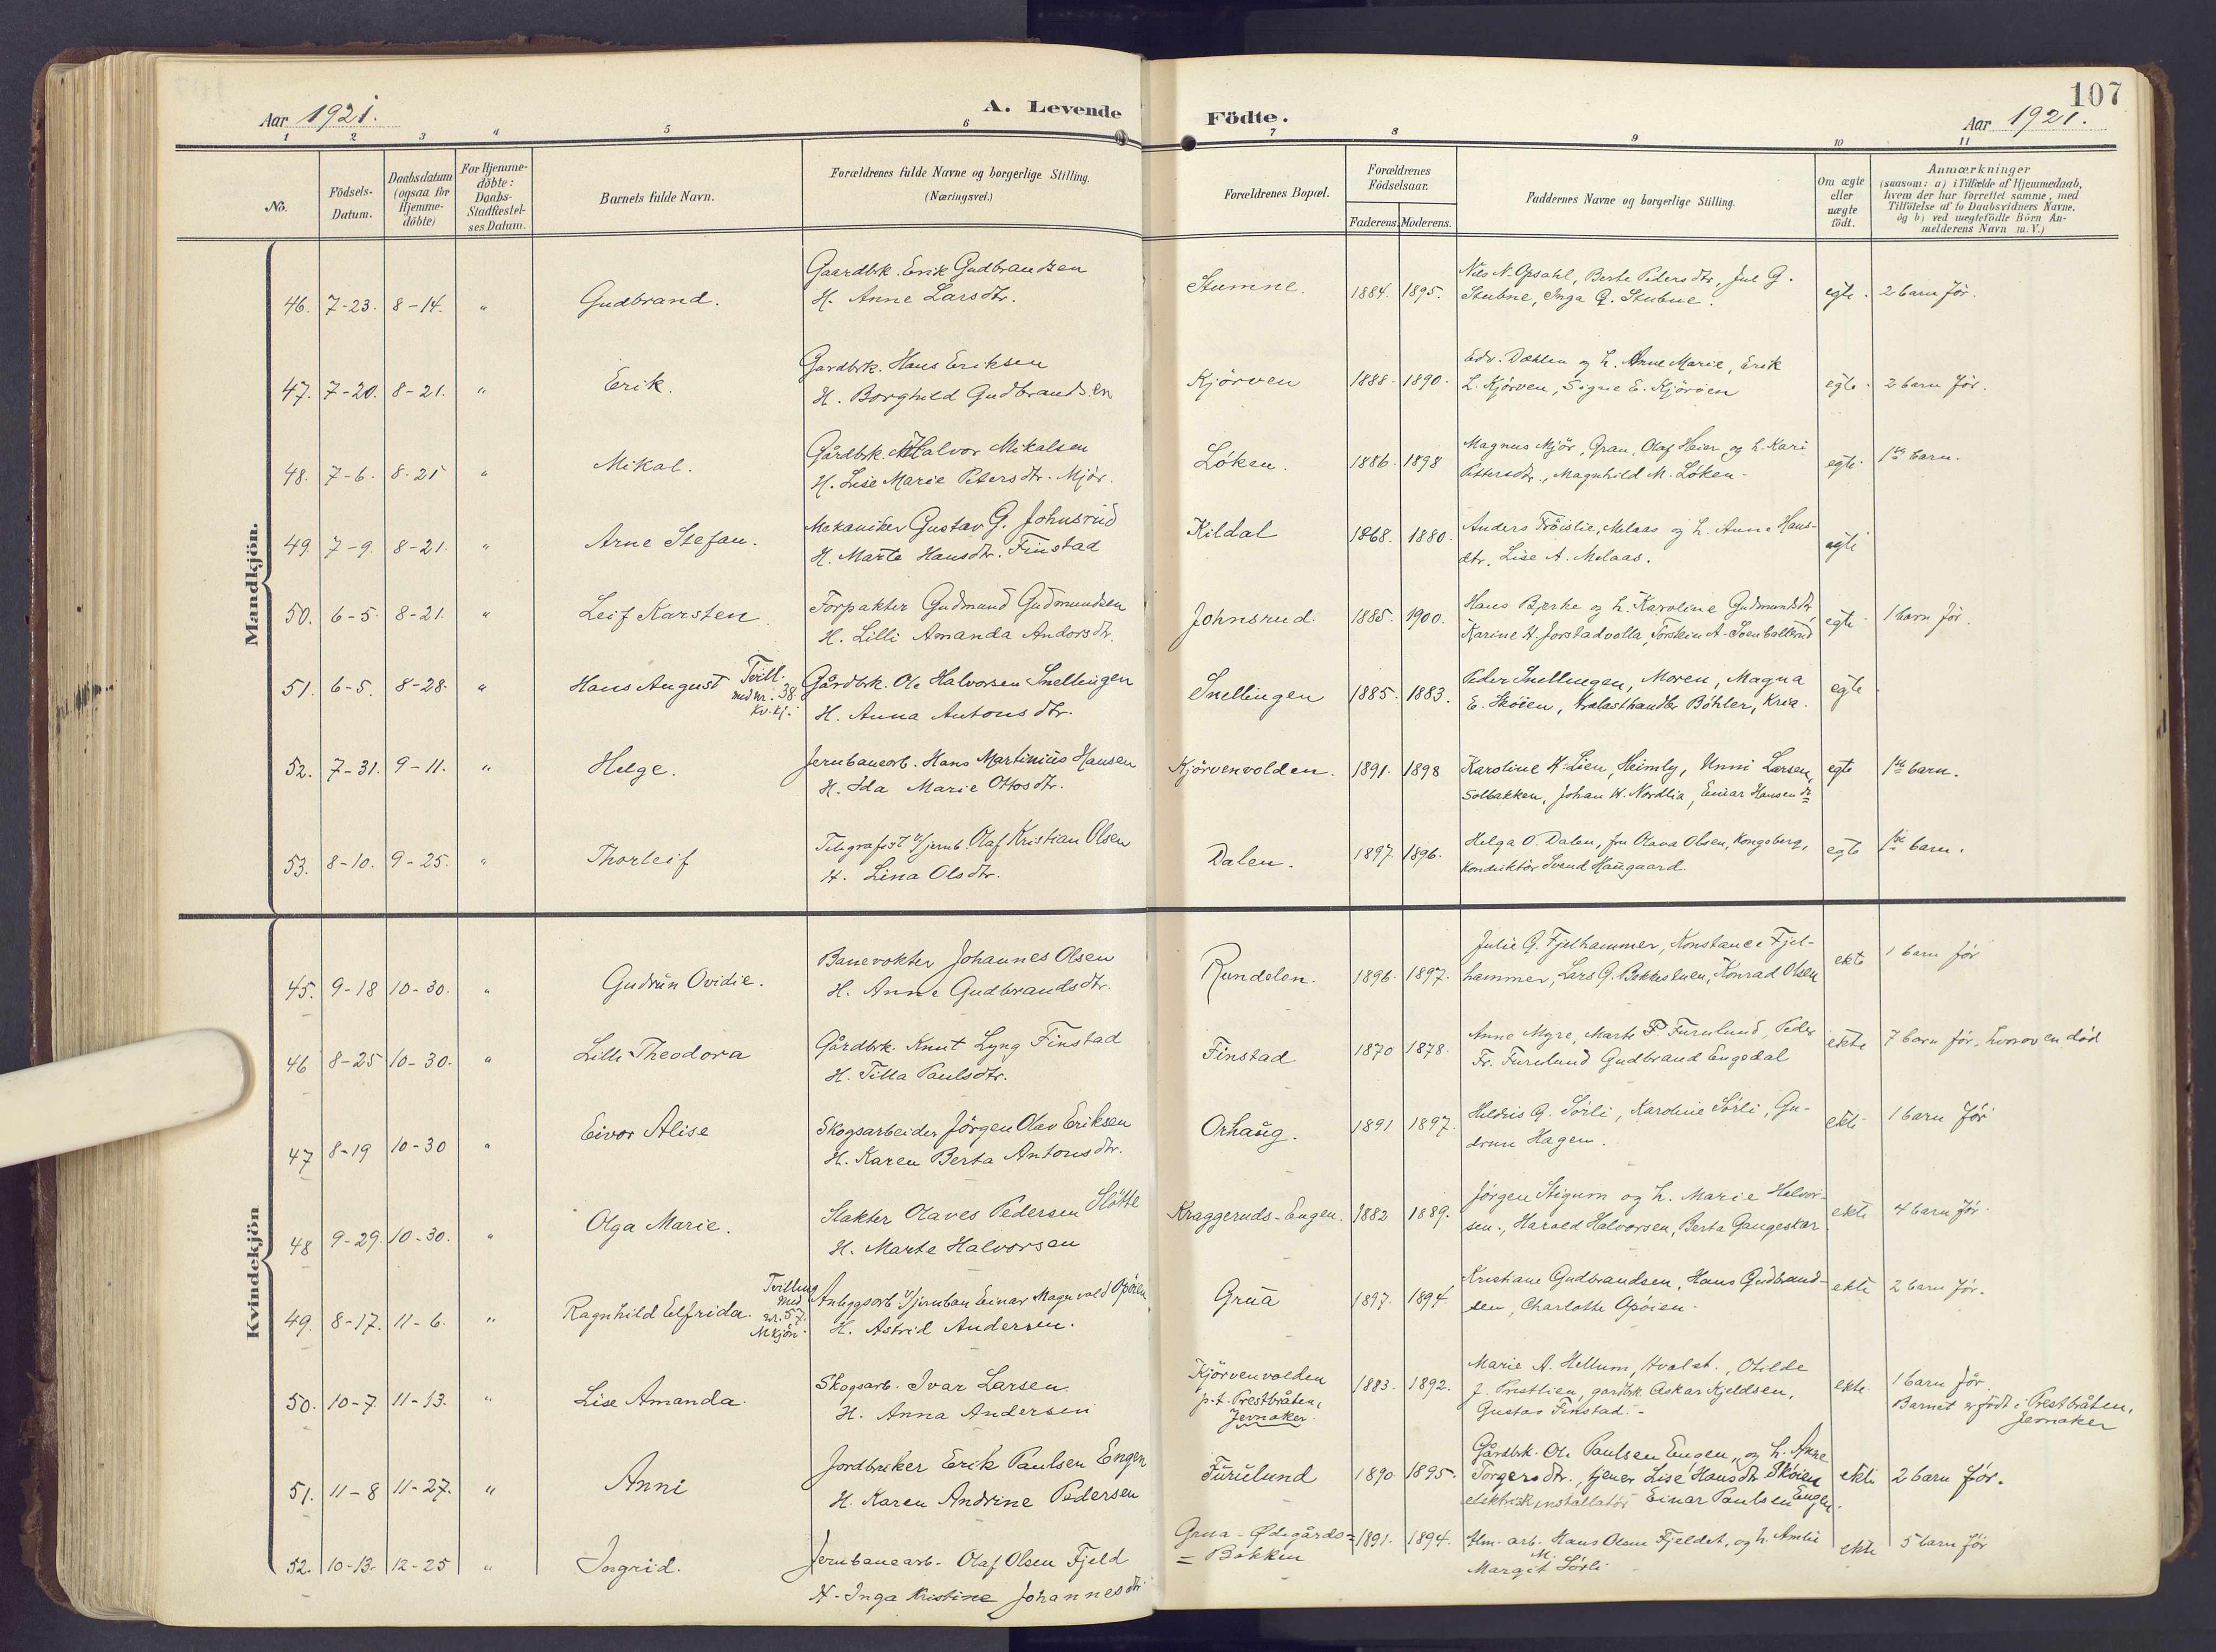 107
Aar 1921.
A. Levende Födte.
Aar 1921.
1 2 3 4 5 6 7 8 9 10 11
No.
Födsels-Datum.
Daabsdatum (ogsaa for Hjemme-döbte)
For Hjemme-döbte: Daabs-Stadfæstel-ses Datum.
Barnets fulde Navn.
Forældrenes fulde Navne og borgerlige Stilling. (Næringsvei.)
Forældrenes Bopæl.
Forældrenes Födselsaar.
Faderens. Moderens.
Faddernes Navne og borgerlige Stilling.
Om ægte eller uægte födt.
Anmærkninger
(saasom: a) i Tilfælde af Hjemmedaab,
hvem der har forrettet samme, med
Tilföielse af to Daabsvidners Navne.
og b) ved uægtefödte Börn An-
melderens Navn m. V.)
Mandkjön.
Gaardbk. Erik Gudbrandsen
Nils N. Opsahl, Berte Pedersdtr, Jul G.
46. 7-23. 8-14. " Gudbrand. H. Anne Larsdtr. Stumne. 1884. 1895. Stubne, Inga G. Stubne. egte. 2 barn før.
Gardbrk. Hans Eriksen
Edv. Dæhlen og h. Anne Marie, Erik
47. 7-20. 8-21. " Erik. H. Borghild Gudbrandsen Kjörven 1888. 1890. L. Kjörven, Signe E. Kjörven egte. 2 barn før.
Gårdbrk. Halvor Mikalsen
Magnus Mjör, Gran, Olaf Heier og h. Kari
48. 7-6. 8-21 " Mikal. H. Lise Marie Petersdtr. Mjör. Løken. 1886. 1898 Pettersdtr., Magnhild M. Løken. egte. 1ste barn.
Mekaniker Gustav G. Johnsrud
Anders Fröislie, Melaas og h. Anne Hans-
49. 7-9. 8-21. " Arne Stefan. H. Marte Hansdtr. Finstad Kildal 1868. 1880. dtr. Lise A. Melaas. egte
Forpakter Gudmund Gudmundsen
Hans Bjerke og h. Karoline Gudmundsdtr,
50. 6-5. 8-21. " Leif Karsten H. Lilli Amanda Andorsdtr. Johnsrud. 1885. 1900. Karine H. Jorstadvolla, Torstein A. egte 1 barn før.
Gårdbrk. Ole Halvorsen Snellingen
Peder Snellingen, Moren, Magna
51. 6-5. 8-28. " Hans August Tvill. med nr. 38. Kv.kj. H. Anna Antonsdtr. Snellingen 1885. 1883. E. Skóien, Böhler, Kria. egte
Jernbanearb. Hans Martinius Hansen
52. 7-31. 9-11. " Helge. H. Ida Marie Ottosdtr. Kjörvenvolden. 1891. 1898 Karoline H. Lien, Heimly, Unni Larsen, egte 1ste barn.
Solbakken, Johan H. Nordlia, Einar Hansen
Telegrafist v/jernb. Olaf Kristian Olsen
Helga O. Dalen, fru Olava Olsen, Kongsberg,
53. 8-10. 9-25. " Thorleif H. Lina Olsdtr. Dalen. 1897. 1896. Konduktör Svend Haugaard. egte 1ste barn.
Kvindekjön
Banevokter Johannes Olsen
Julie G. Fjelhammer, Konstance Fjel-
45. 9-18 10-30. " Gudrun Ovidie. H. Anne Gudbrandsdtr. Rundelen. 1896. 1897. hammer, Lars G. Bekkestuen, Konrad Olsen ekte 1 barn før
Gårdbrk. Knut Lyng Finstad
Anne Myre, Marte P. Furulund, Peder
46 8-25 10-30. " Lilli Theodora H. Tilla Paulsdtr. Finstad 1870 1878. Fr. Furulund Gudbrand Engedal ekte 7 barn før, hvorav en død
Skogsarbeider Jörgen Olav Eriksen
Heldris G. Sörli, Karoline Sörli, Gu-
47 8-19 10-30 " Eivor Alise H. Karen Berta Antonsdtr. Orhaug. 1891 1897. drun Hagen. ekte 1 barn før
Slakter Olaves Pedersen Slötte
Jörgen Stigum og h. Marie Halvor-
48 9-29. 10-30. " Olga Marie. H. Marte Halvorsen Kraggeruds-Engen. 1882 1889. sen., Harald Halvorsen, Berta Gaugeskar ekte 4 barn før.
Anleggsarb. v/jernban Einar Magnvald Opöien
Kristiane Gudbrandsen, Hans Gudbrand-
49. 8-17. 11-6. " Ragnhild Elfrida. Tvilling med nr. 57. Mkjön. H. Astrid Andersen. Grua 1897. 1894. sen, Charlotte Opöien. ekte 2 barn før.
Skogsarb. Ivar Larsen
Marie A. Hellum, Hvalst., Otilde
50. 10-7. 11-13. " Lise Amanda. H. Anna Andersen Kjörvenvolden p.t. Prestbråten, Jevnaker. 1883. 1892. J. Prestlien, gardbrk. Askar Kjeldsen, Gustav Finstad. ekte 1 barn før.
Barnet er født i Prestbråten, Jevnaker
Jordbruker Erik Paulsen Engen
Gårdbrk. Ole Paulsen Engen, og h. Anne
51. 11-8 11-27. " Anni H. Karen Andrine Pedersen Furulund 1890 1895. Torgersdtr., tjener Lise Hansdtr Skóien ekte 2 barn før.
elektriskinstallatör Einar Paulsen Engen.
52. 10-13. 12-25 " Ingrid. Jernbanearb. Olaf Olsen Fjeld Grua - Ødegårds= = Bakken 1891. 1894. Alm. arb. Hans Olsen Fjeldet, og h. Amlie ekte 5 barn før
H. Inga Kristine Johannesdtr
Margit M. Sörli